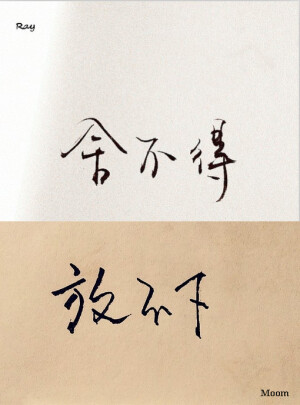 Ray
舍不得
放不下
Moom